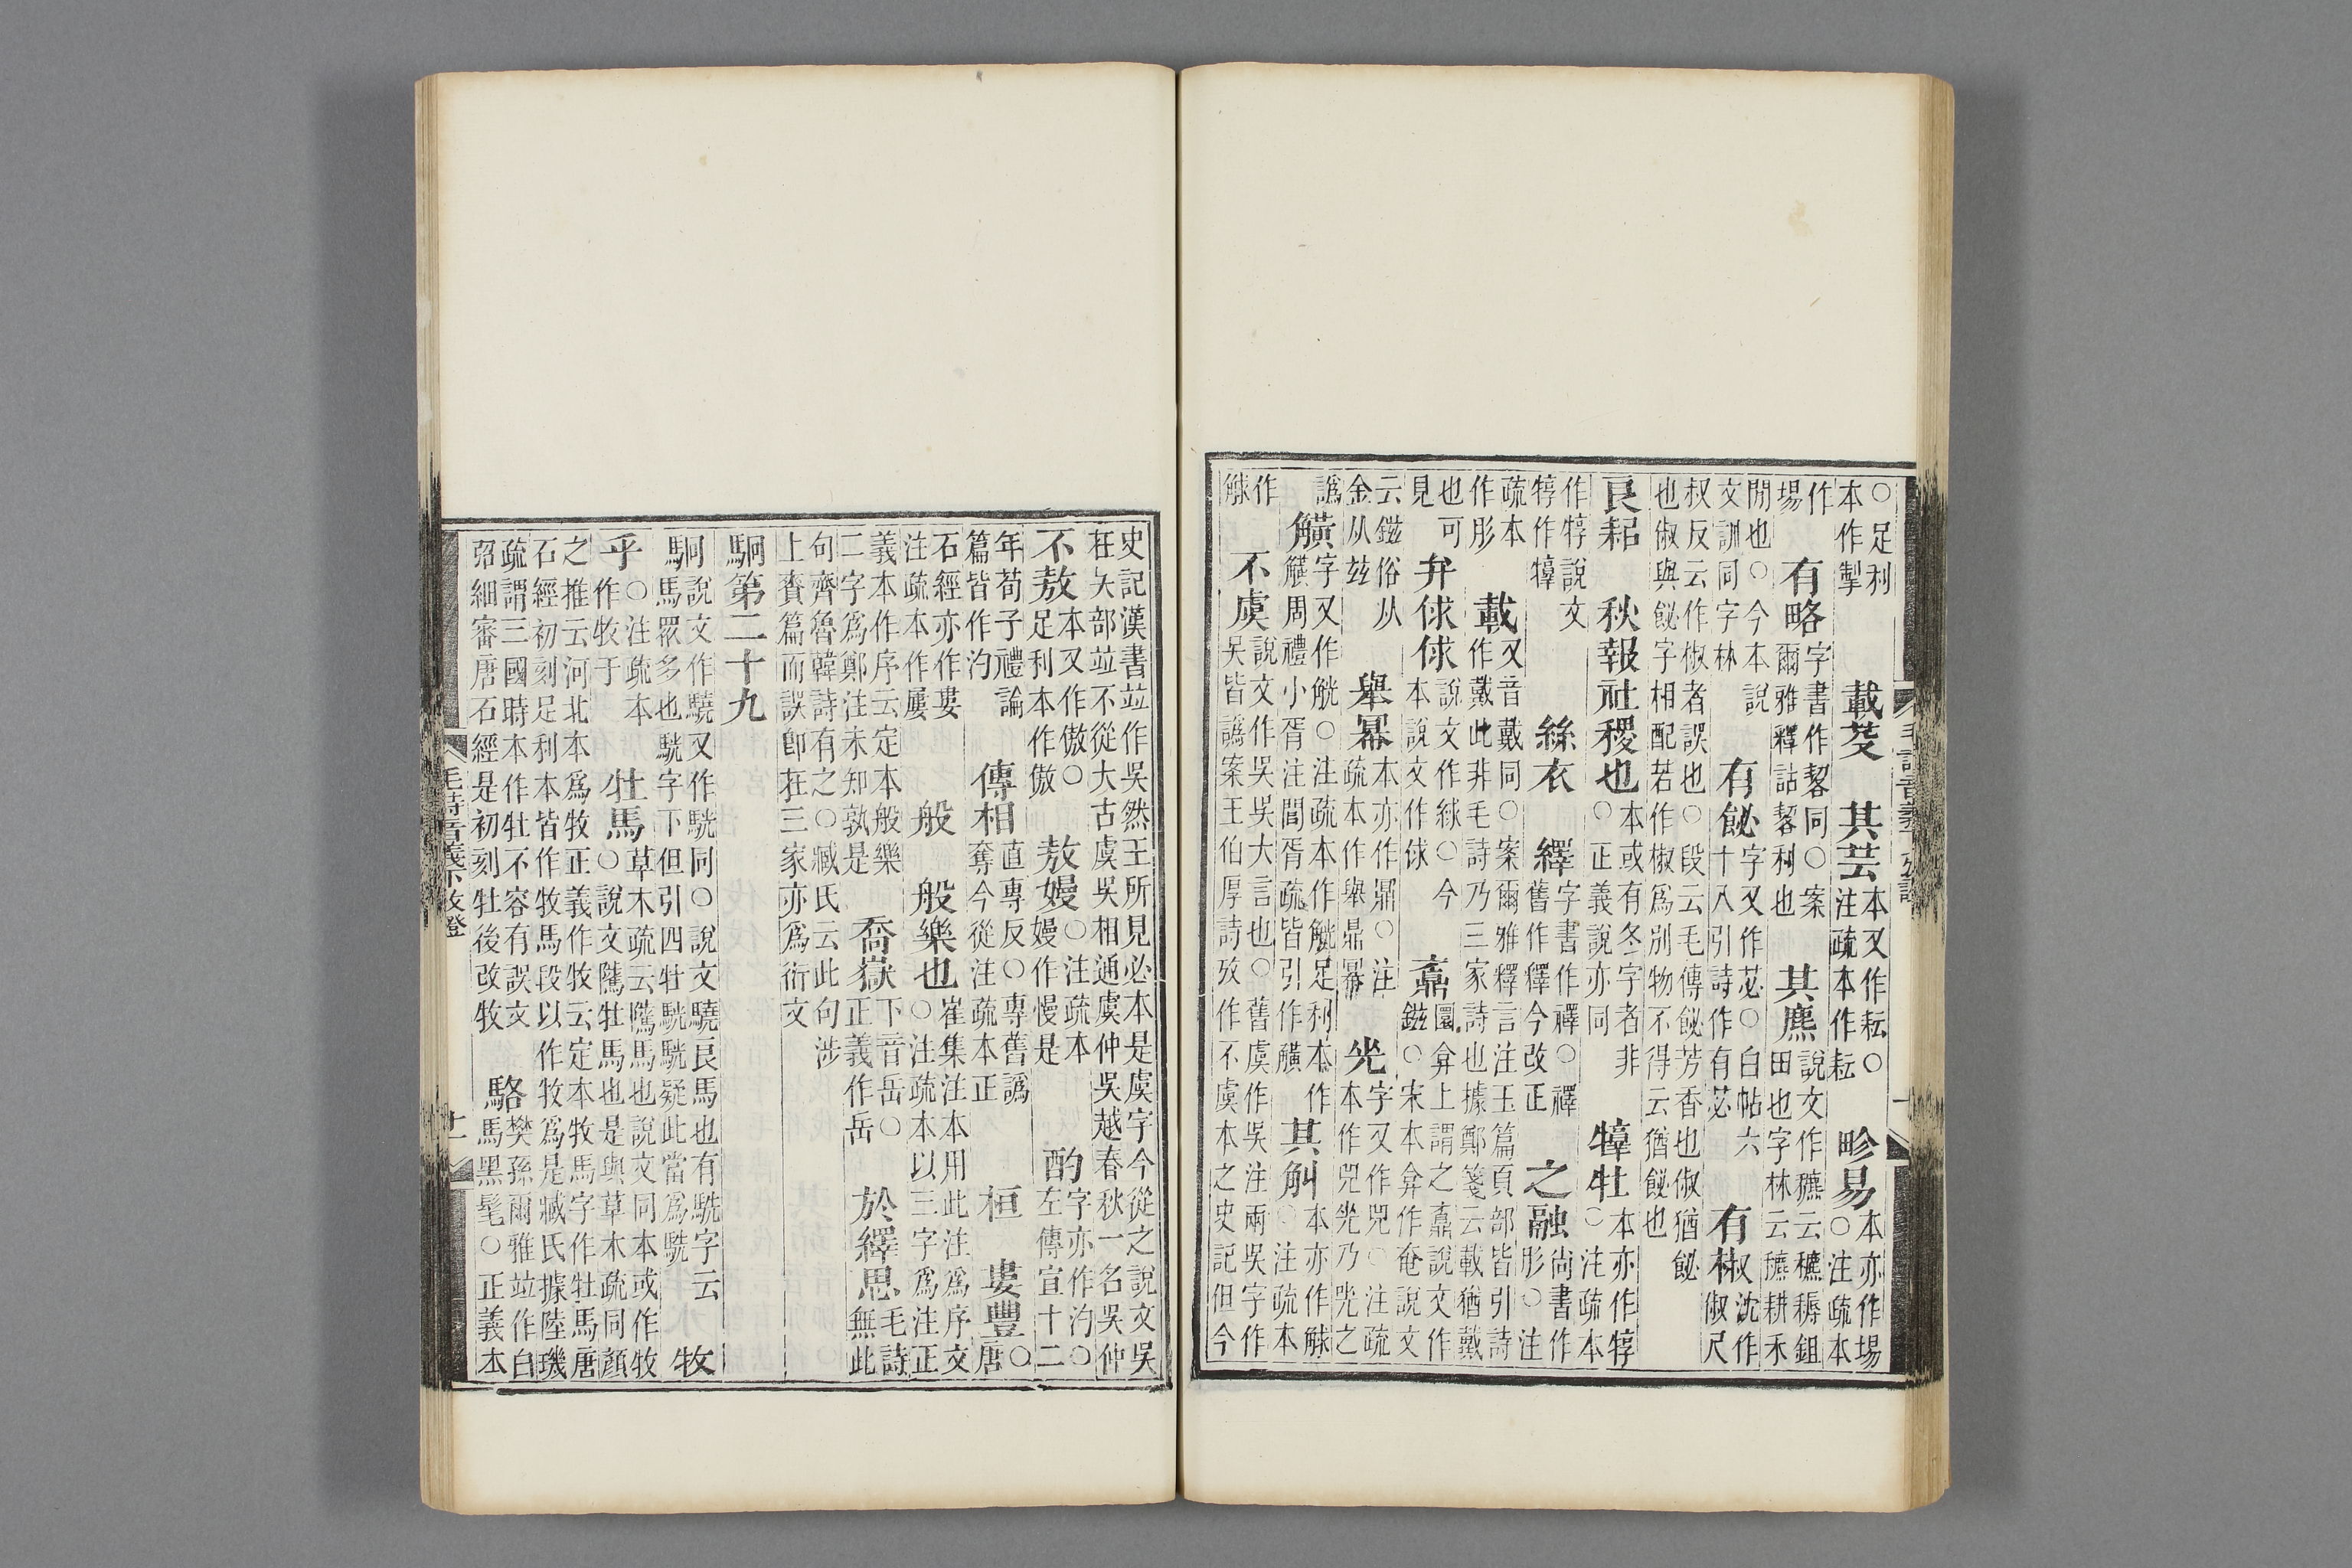 ○足利本作掣　載芟　其芸本又作耘○注疏本作耘　畛易本亦作場○注疏本
作場　有略字書作䂮同○案爾雅釋詁䂮利也　其麃說文作穮云穮耨鉏田也字林云穮耕禾
閒也○今本說文訓同字林　有飶字又作苾○白帖六十八引詩作有苾　有椒叔沈作俶尺
叔反云作椒者誤也○段云毛傳飶芳香也俶猶飶也俶與飶字相配若作椒爲別物不得云猶飶也
良耜　秋報社稷也本或有冬字者非○正義說亦同　犉牡本亦作犉○注疏本
作犉說文犉作犉　絲衣　繹字書作䄬○䄬舊作釋今改正　之融尚書作肜○注
疏本作肜　載又音戴同○案爾雅釋言注玉篇頁部皆引詩作戴此非毛詩乃三家詩也據鄭箋云載猶戴
也可見　弁俅俅說文作絿○今本說文作俅　鼒圜弇上謂之鼒說文作鎡○宋本弇作奄說文
云鎡俗从金从玆　舉冪本亦作鼏○注疏本作舉鼎冪　兕字又作兕○注疏本作兕光乃兕之
譌　觵字又作觥○注疏本作觥足利本作觵周禮小胥注閭胥疏皆引作觵　其觓本亦作觩○注疏本
作觩　不虞說文作吳吳大言也○舊虞作吳注兩吳字作吳皆譌案王伯厚詩攷作不虞本之史記但今
史記漢書竝作吳然王所見必本是虞字今從之說文吳在夨部竝不從大古虞吳相通虞仲吳越春秋一名吳仲
不敖本又作傲○足利本作傲　敖嫚○注疏本嫚作慢是　酌字亦作汋○左傳宣十二
年荀子禮論篇皆作汋　傳相直專反○專舊譌奪今從注疏本正　桓　婁豐○唐
石經亦作婁注疏本作屢　般　般樂也○崔集注本用此注爲序文注疏本以三字爲注正
義本作序云定本般樂二字爲鄭注未知孰是　喬嶽下音岳○正義作岳　於繹思毛詩無此
句齊魯韓詩有之○臧氏云此句涉上賚篇而誤卽在三家亦爲衍文
駉第二十九
駉說文作驍又作駫同○說文驍良馬也有駫字云馬眾多也駫字下但引四牡駫駫疑此當爲駫　牧
乎○注疏本作牧于　牡馬草木疏云騭馬也說文同本或作牧○說文騭牡馬也是與草木疏同顏
之推云河北本爲牧正義作牧云定本牧馬字作牡馬唐石經初刻足利本皆作牧馬段以作牧爲是臧氏據陸璣
疏謂三國時本作牡不容有誤文弨細審唐石經是初刻牡後改牧　駱樊孫爾雅竝作白馬黑髦○正義本
毛詩音義下攷證
十一